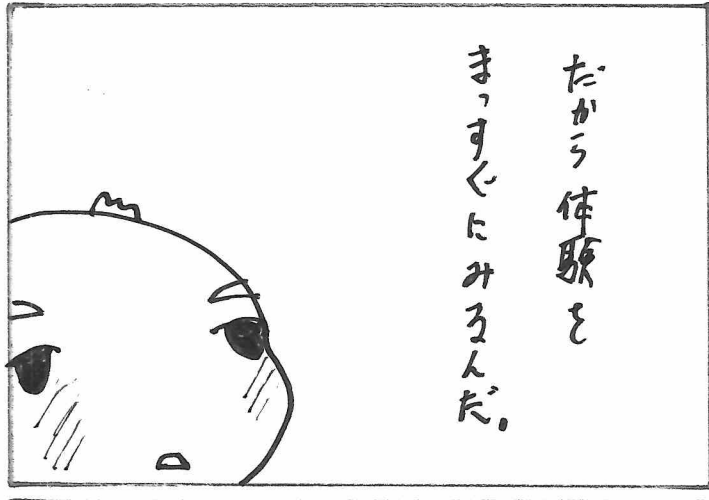 だから体験を
まっすぐにみるんだ。